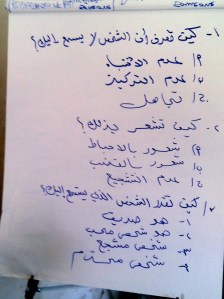 ١- كيف تعرف أن الشخص لا يسمع إليك؟
أ/ عدم الانتباه
ب/ عدم التركيز
ج/ تجاهل
٢- كيف تشعر بذلك؟
أ/ شعور بالاحباط
ب/ شعور بالغضب
ج/ عدم التشجيع
كيف تجد الشخص الذي يستمع إليك؟
١- هو صديق
٢- هو شخص محب
٣- شخص مشجع
٤- شخص محترم